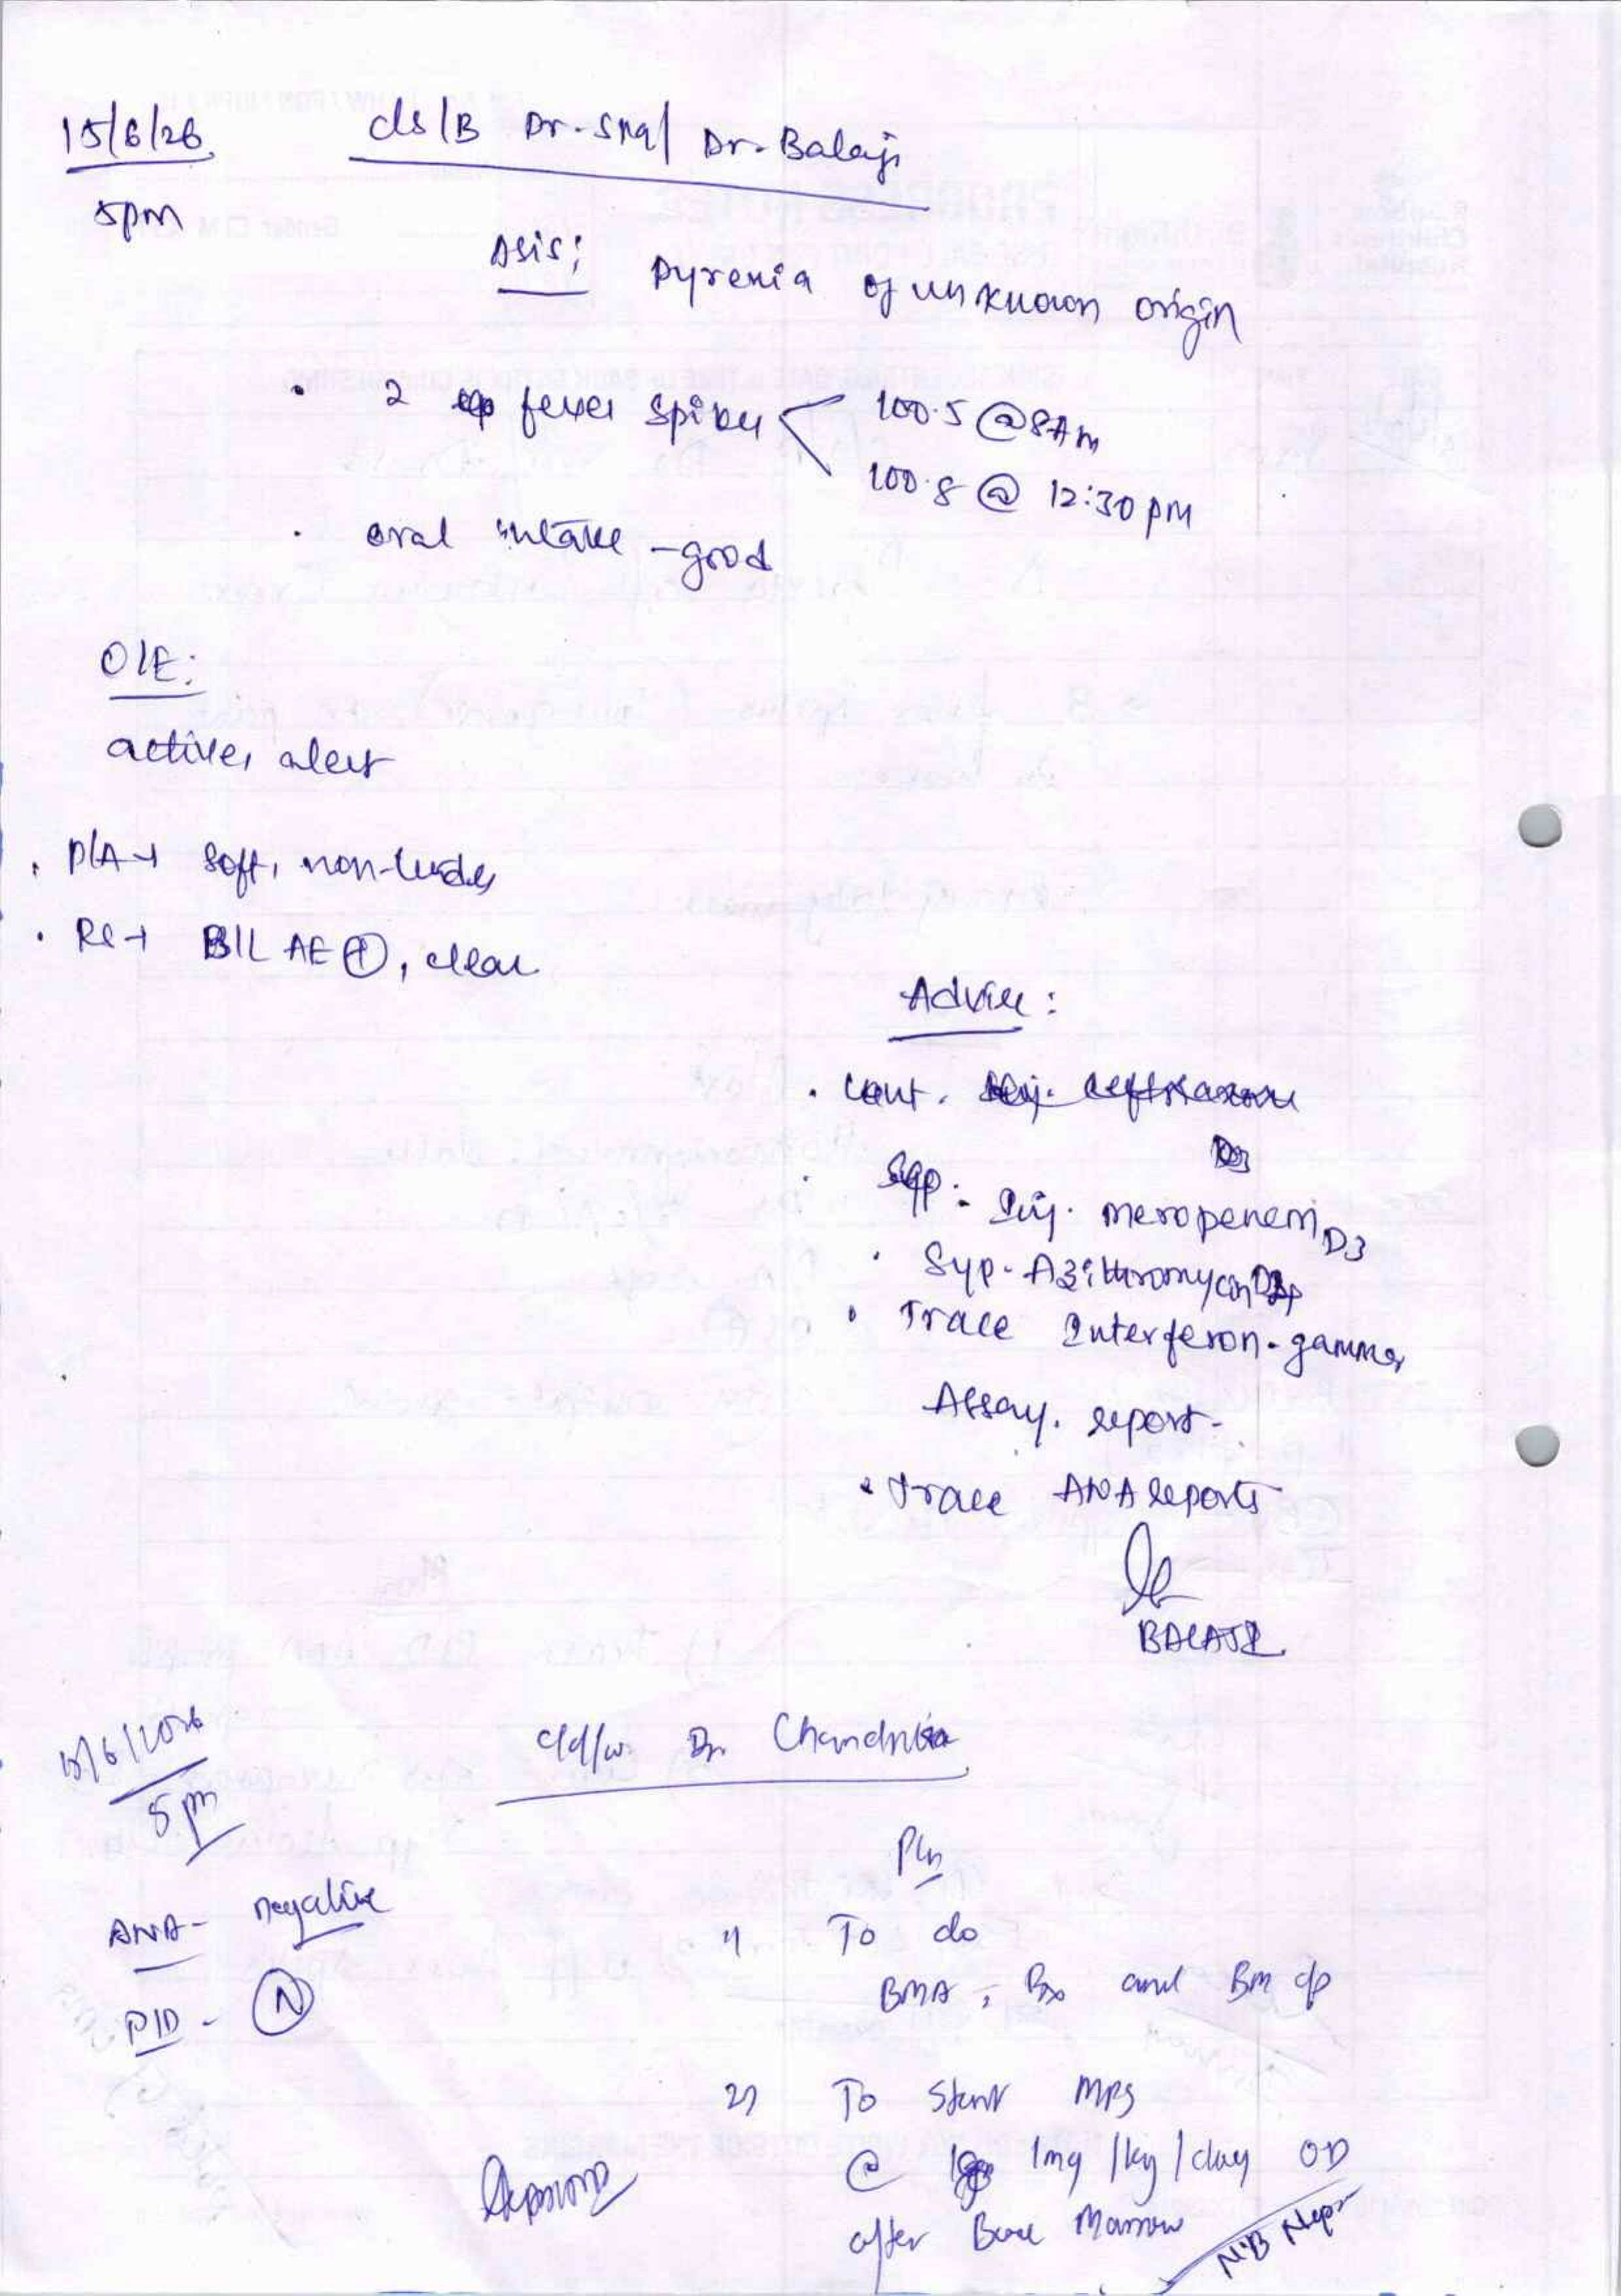 15/6/26
5pm
c/s/B Dr. SNA/ Dr. Balaji
Δsis: Pyrexia of unknown origin
• 2 fever spikes 100.5 @ 8Am
100.8 @ 12:30 pm
• oral intake - good
O/E:
active, alert
• P/A → soft, non-tender
• RS → B/L AE ⊕, clear
Advice:
• Cont. Inj. Ceftriaxone
Inj. meropenem D3
• Syp. Azithromycin
• Trace Interferon-gamma
Assay. report.
• Trace ANA reports
BALAJI
15/6/2026
5 pm
c/d/w. Dr. Chandrika
ANA - negative
PID - Ⓝ
Pln
1) To do
BMA, Bx and Bm c/s
2) To Start MPS
@ 1mg /kg /day OD
after Bone Marrow